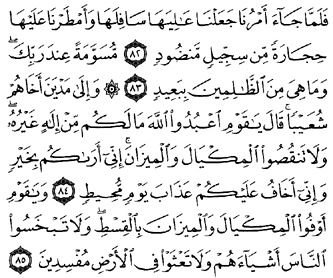 فَلَمَّا جَآءَ أَمْرُنَا جَعَلْنَا عَـٰلِيَهَا سَافِلَهَا وَأَمْطَرْنَا عَلَيْهَا
حِجَارَةً مِّن سِجِّيلٍ مَّنضُودٍ ﴿٨٢﴾ مُّسَوَّمَةً عِندَ رَبِّكَ ۖ
وَمَا هِىَ مِنَ ٱلظَّـٰلِمِينَ بِبَعِيدٍ ﴿٨٣﴾ ۞ وَإِلَىٰ مَدْيَنَ أَخَاهُمْ
شُعَيْبًا ۚ قَالَ يَـٰقَوْمِ ٱعْبُدُوا۟ ٱللَّهَ مَا لَكُم مِّنْ إِلَـٰهٍ غَيْرُهُۥ ۖ
وَلَا تَنقُصُوا۟ ٱلْمِكْيَالَ وَٱلْمِيزَانَ ۚ إِنِّىٓ أَرَىٰكُم بِخَيْرٍ
وَإِنِّىٓ أَخَافُ عَلَيْكُمْ عَذَابَ يَوْمٍ مُّحِيطٍ ﴿٨٤﴾ وَيَـٰقَوْمِ
أَوْفُوا۟ ٱلْمِكْيَالَ وَٱلْمِيزَانَ بِٱلْقِسْطِ ۖ وَلَا تَبْخَسُوا۟
ٱلنَّاسَ أَشْيَآءَهُمْ وَلَا تَعْثَوْا۟ فِى ٱلْأَرْضِ مُفْسِدِينَ ﴿٨٥﴾